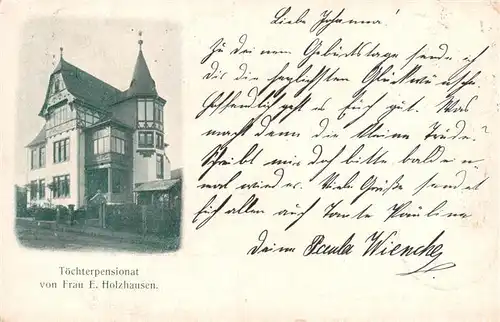 Liebe Johanna!
Zu deinem Geburtstage sende ich
dir die herzlichsten Glückwünsche.
Hoffentlich geht es Euch gut. Was
macht denn die kleine Trude?
Schreibt mir doch bitte bald ein-
mal wieder. Viele Grüße sendet
Euch allen auch Tante Paulina
deine Paula Wiencke
Töchterpensionat
von Frau E. Holzhausen.